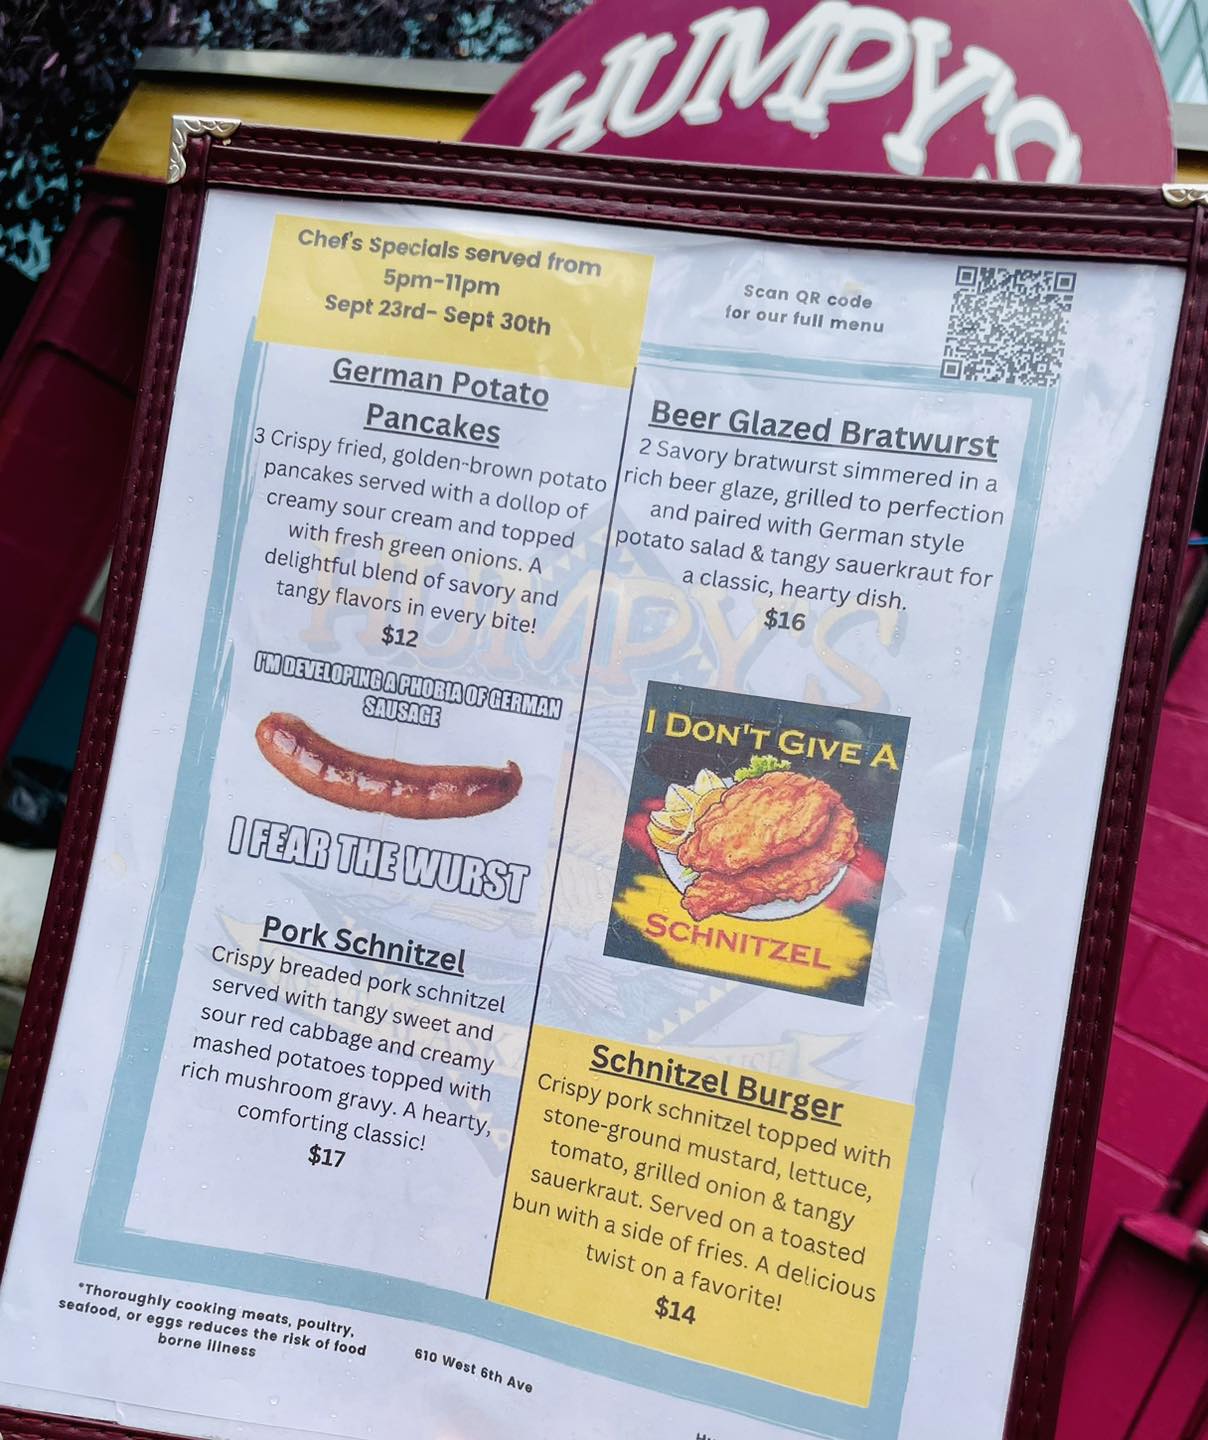 HUMPY'S
Chef's Specials served from
5pm-11pm
Sept 23rd- Sept 30th
Scan QR code
for our full menu
German Potato
Pancakes
3 Crispy fried, golden-brown potato
pancakes served with a dollop of
creamy sour cream and topped
with fresh green onions. A
delightful blend of savory and
tangy flavors in every bite!
$12
I'M DEVELOPING A PHOBIA OF GERMAN
SAUSAGE
I FEAR THE WURST
Pork Schnitzel
Crispy breaded pork schnitzel
served with tangy sweet and
sour red cabbage and creamy
mashed potatoes topped with
rich mushroom gravy. A hearty,
comforting classic!
$17
Beer Glazed Bratwurst
2 Savory bratwurst simmered in a
rich beer glaze, grilled to perfection
and paired with German style
potato salad & tangy sauerkraut for
a classic, hearty dish.
$16
I DON'T GIVE A
SCHNITZEL
Schnitzel Burger
Crispy pork schnitzel topped with
stone-ground mustard, lettuce,
tomato, grilled onion & tangy
sauerkraut. Served on a toasted
bun with a side of fries. A delicious
twist on a favorite!
$14
HUMPY'S
*Thoroughly cooking meats, poultry,
seafood, or eggs reduces the risk of food
borne illness
610 West 6th Ave